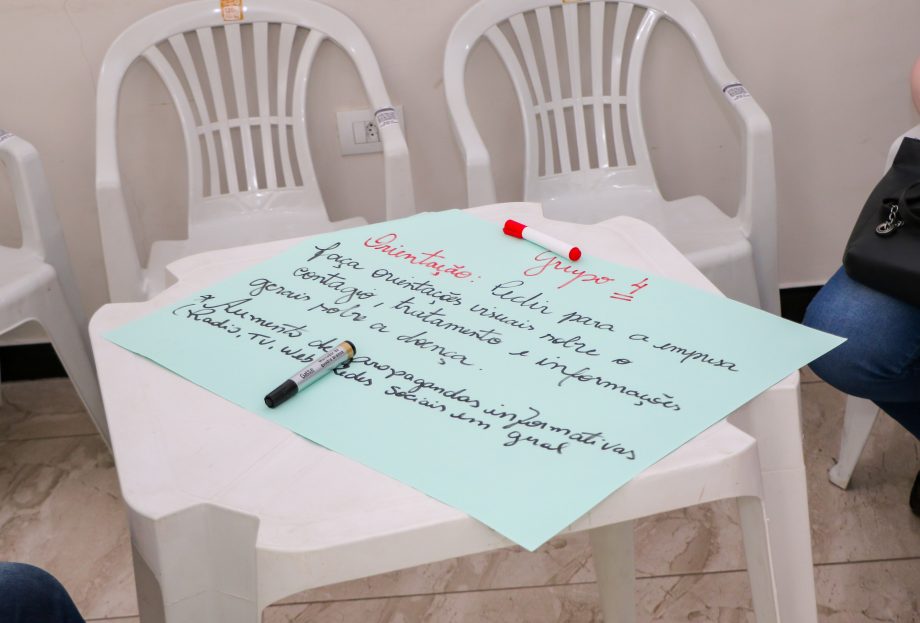 Grupo 4
Orientação: Pedir para a empresa
faça orientações visuais sobre o
contagio, tratamento e informações
gerais sobre a doença.
* Aumento de propagandas informativas
(Radio, TV, Web Redes sociais em geral